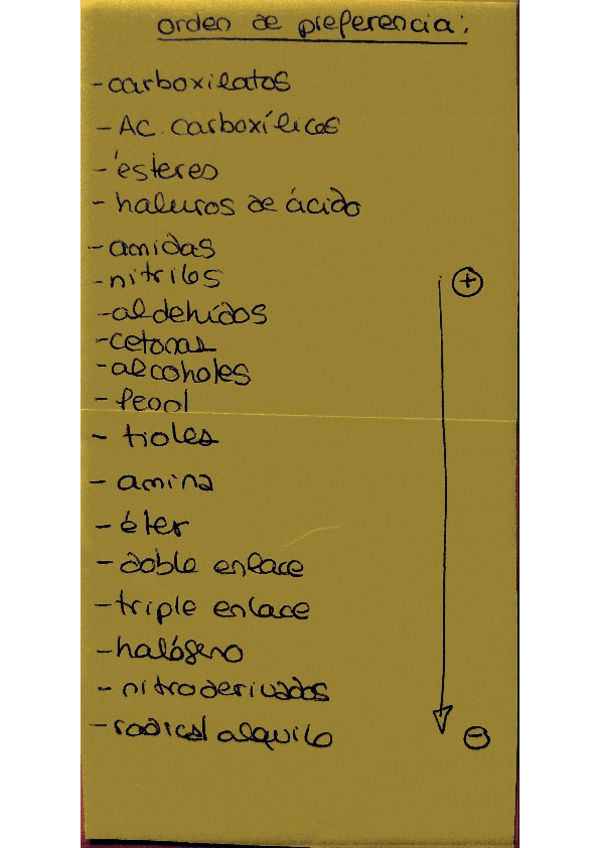 orden de preferencia:
- carboxilatos
- AC. carboxílicos
- ésteres
- haluros de ácido
- amidas
- nitrilos
- aldehídos
- cetonas
- alcoholes
- fenol
- tioles
- amina
- éter
- doble enlace
- triple enlace
- halógeno
- nitroderivados
- radical alquilo
+
-